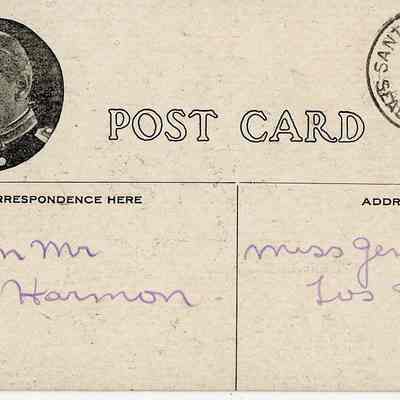 SANT
SEAL
POST CARD
RRESPONDENCE HERE
ADDR
n Mr
Harmon
Miss Gen
Los